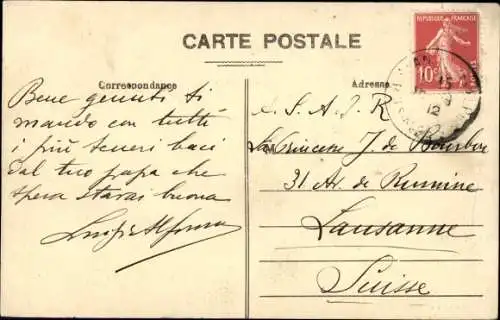 CARTE POSTALE
REPUBLIQUE FRANÇAISE
10
Correspondance
Adresse
Bene giunti ti
mando con tutti
i più teneri baci
dal tuo papa che
spera starai buona
Luigi Alfonso
A S. A. J. R
La Princesse J. de Bourbon
31 Av. de Rumine
Lausanne
Suisse